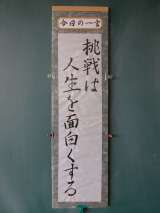 今日の一言
挑戦は
人生を面白くする